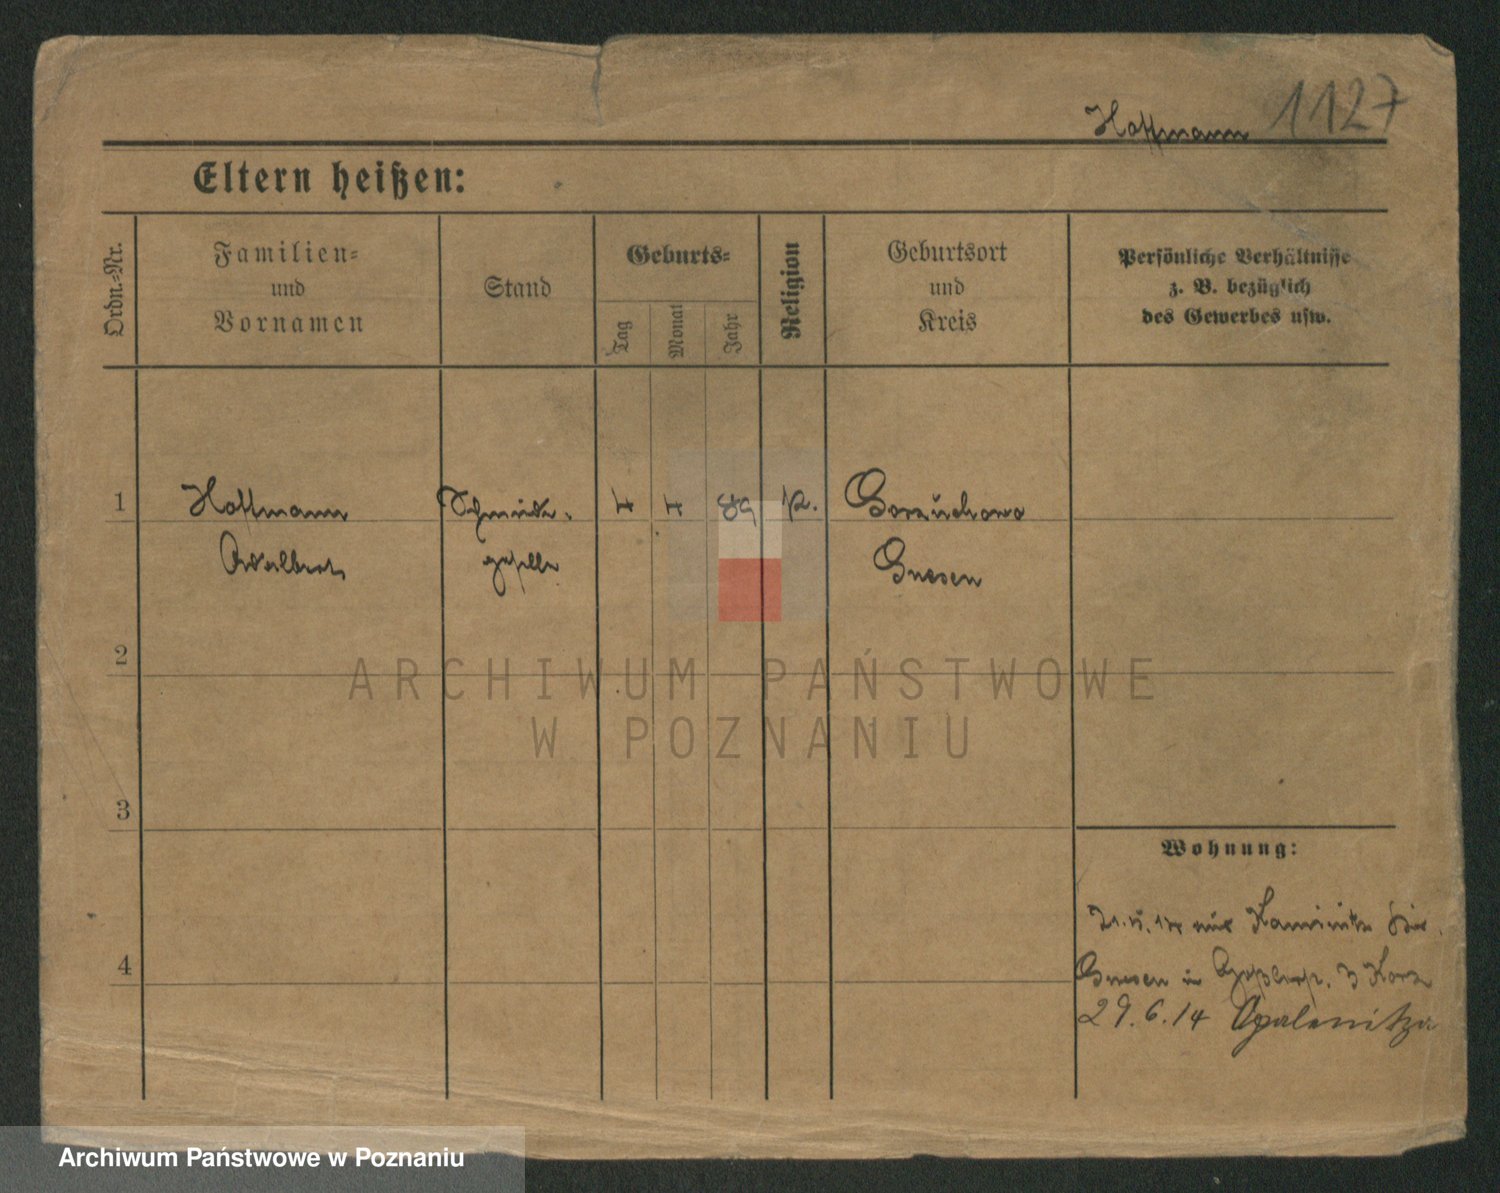 Hoffmann 1127
Eltern heißen:
Ordn.-Nr.
Familien-
und
Vornamen
Stand
Geburts-
Tag
Monat
Jahr
Religion
Geburtsort
und
Kreis
Persönliche Verhältnisse
z. B. bezüglich
des Gewerbes usw.
1 Hoffmann Schmiede- 4 4 89 K.
Adalbert geselle Gnesen
2
3
4
Wohnung:
aus Kaminitz
Gnesen in
29.6.14 Opalenitza
ARCHIWUM PAŃSTWOWE
W POZNANIU
Archiwum Państwowe w Poznaniu